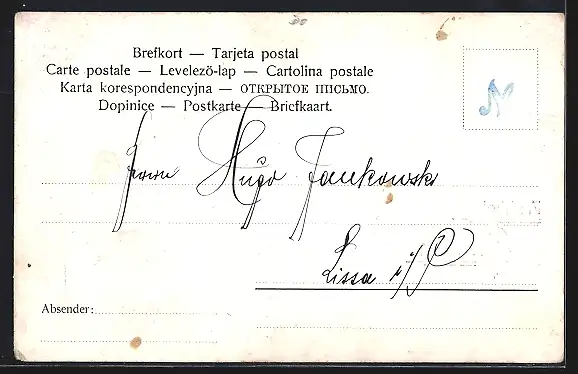 Brefkort — Tarjeta postal
Carte postale — Levelező-lap — Cartolina postale
Karta korespondencyjna — ОТКРЫТОЕ ПИСЬМО.
Dopisnice — Postkarte — Briefkaart.
N
Herrn Hugo Jankowski
Lissa i/P
Absender: